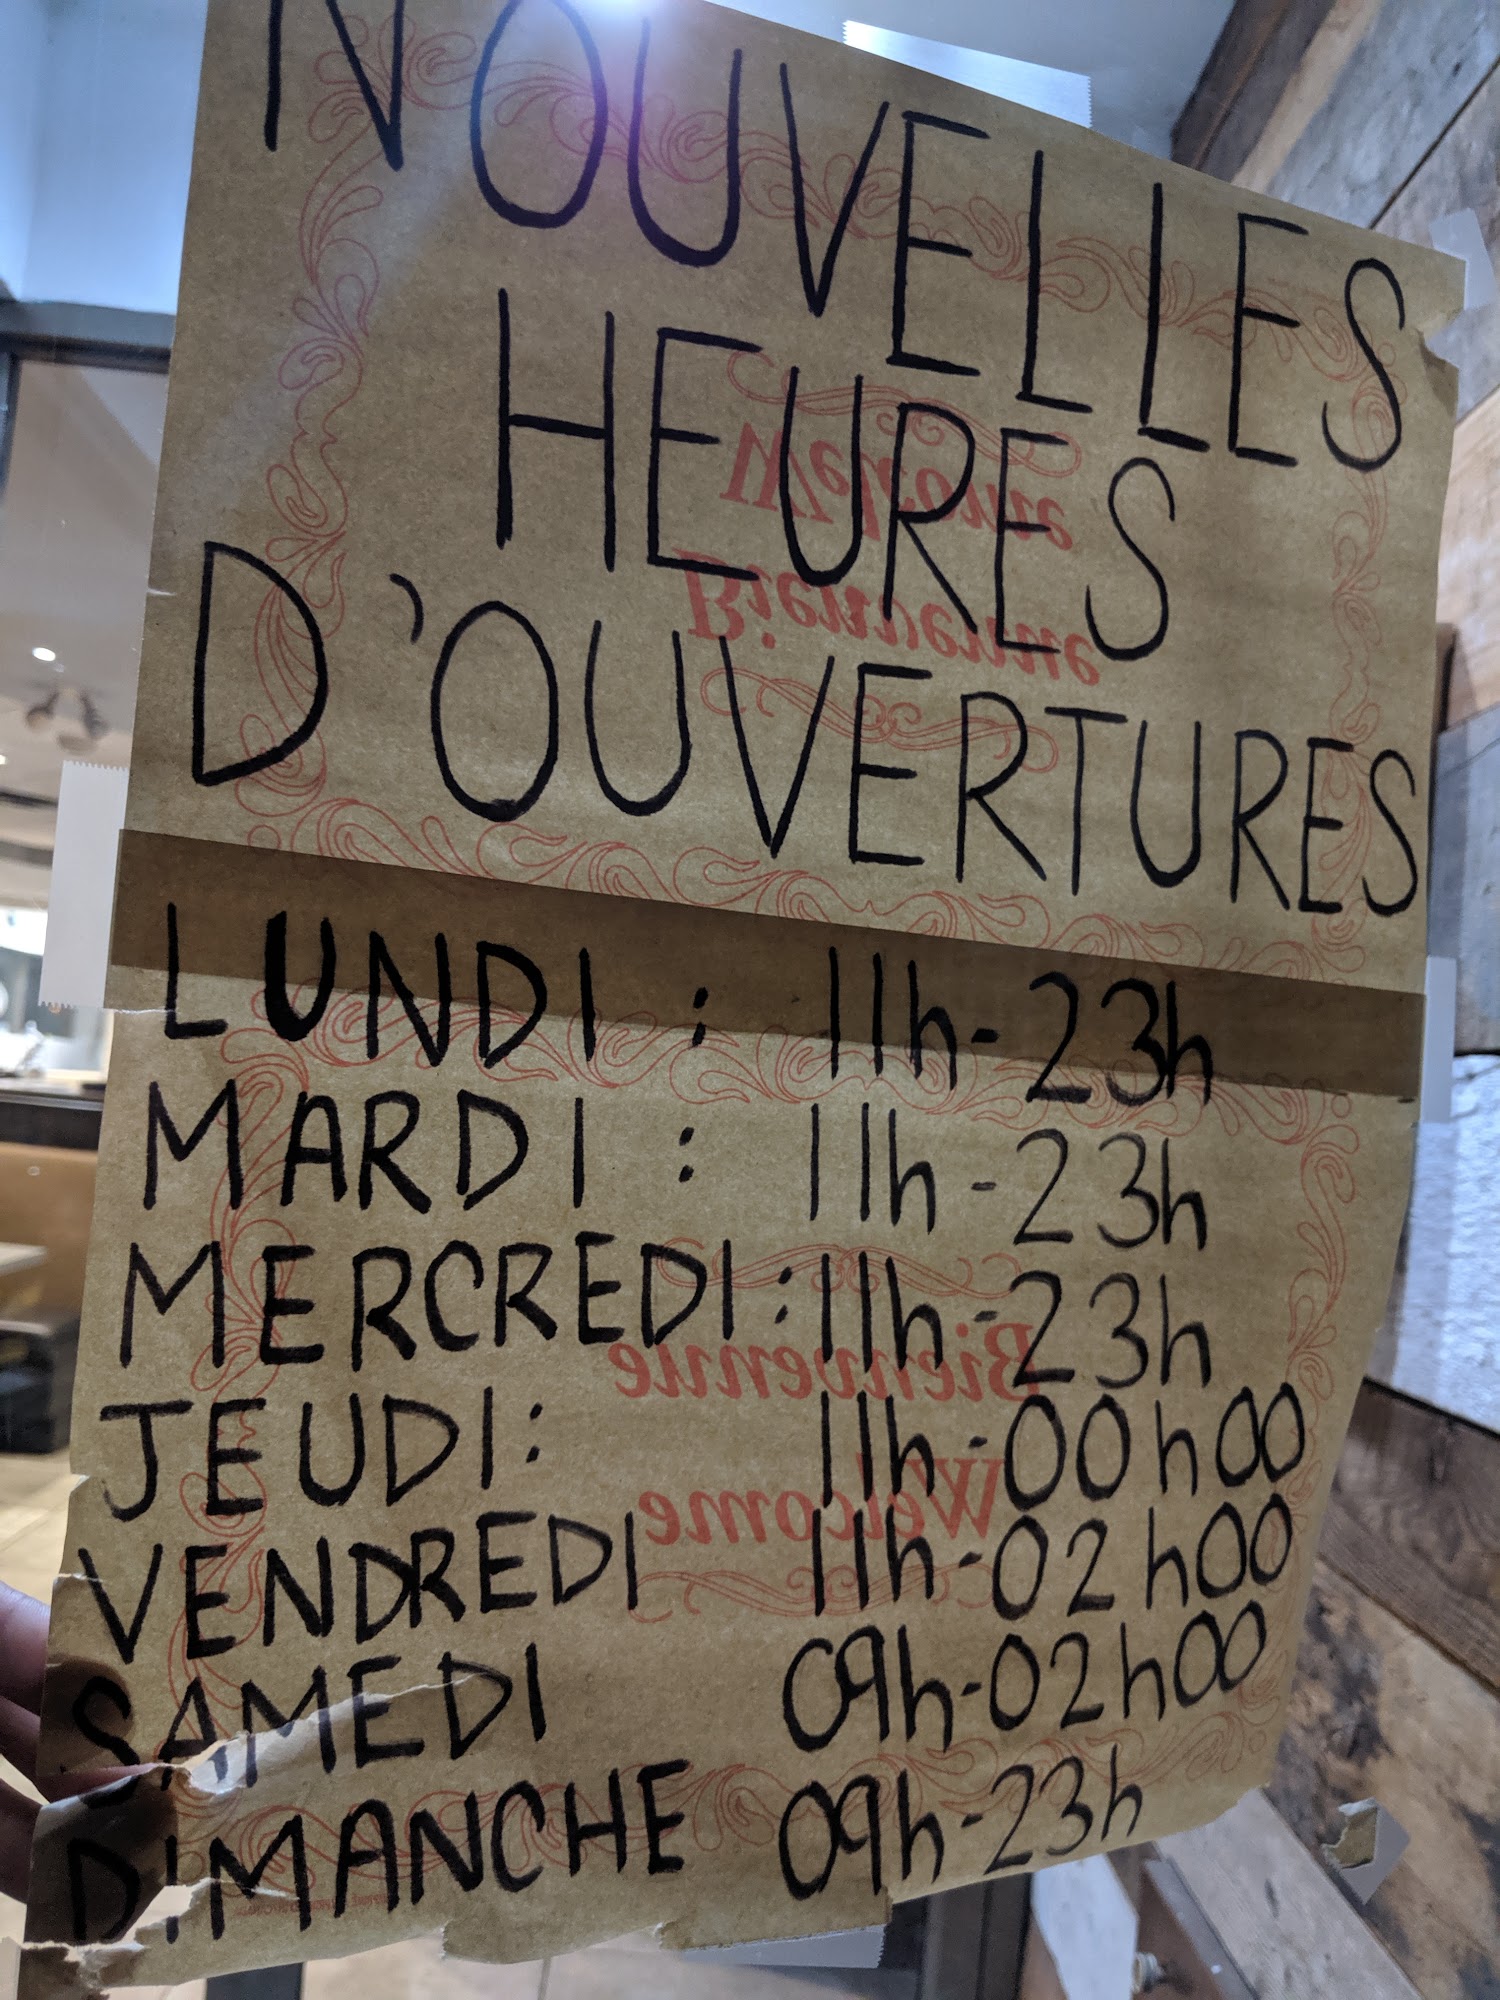 NOUVELLES
HEURES
D'OUVERTURES
Welcome
Bienvenue
LUNDI : 11h-23h
MARDI : 11h-23h
MERCREDI : 11h-23h
Bienvenue
JEUDI : 11h-00h00
Welcome
VENDREDI 11h-02h00
SAMEDI 09h-02h00
DIMANCHE 09h-23h